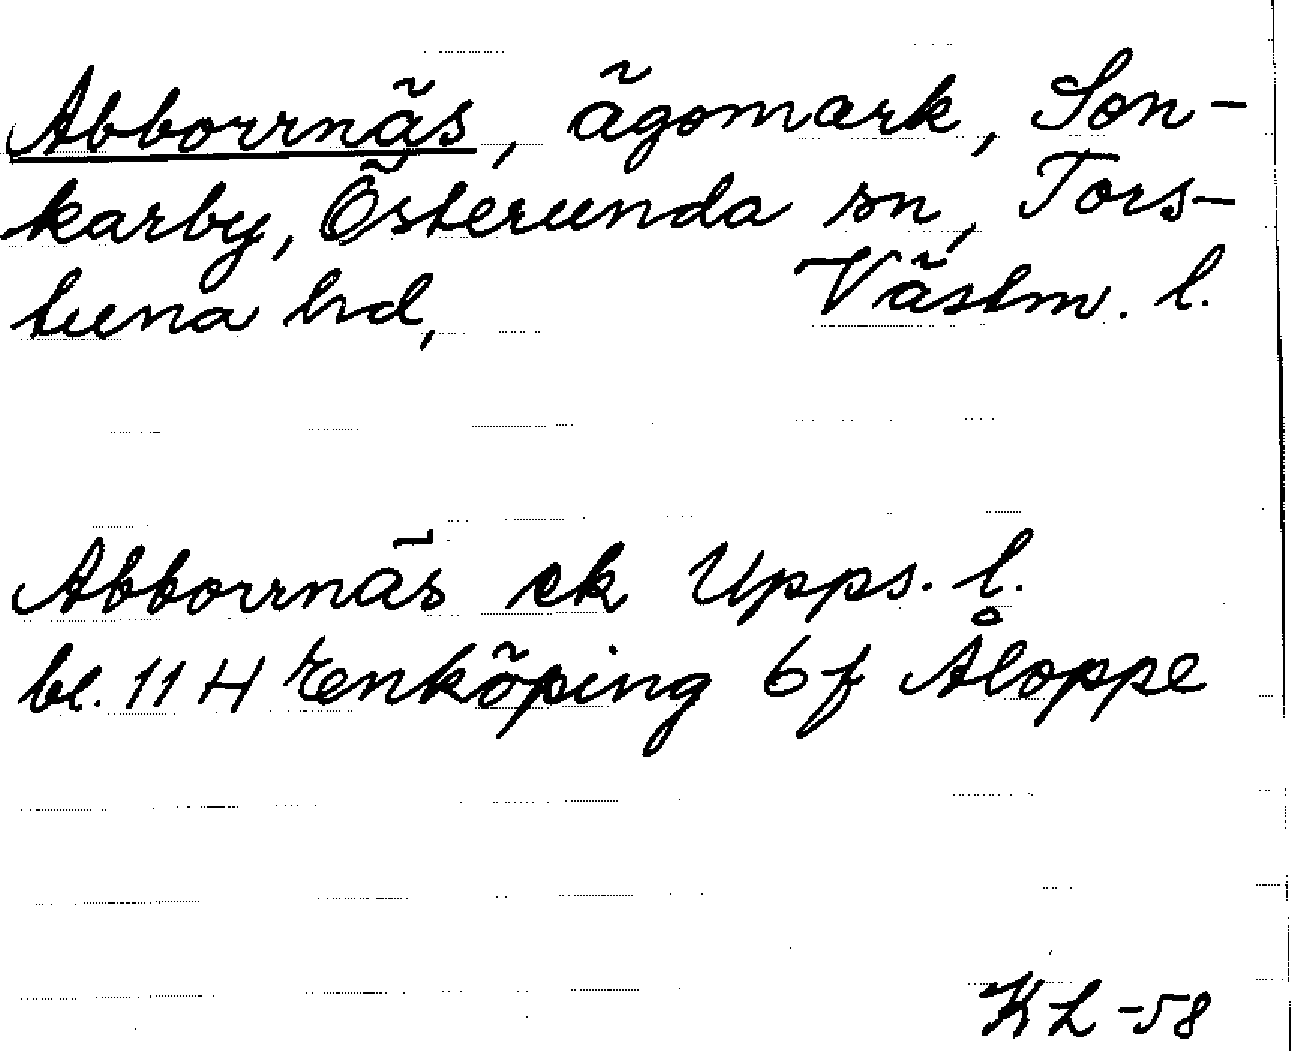 Abborrnäs, ägomark, Son-
karby, Österunda sn, Tors-
tuna hd, Västm. l.
Abborrnäs ek Upps. l.
bl. 11 H Enköping 6f Åloppe
KL -58